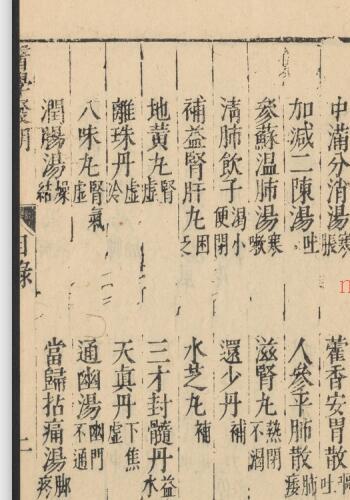 中滿分消湯 寒脹 藿香安胃散
加減二陳湯 吐 人參平肺散 肺痿
參蘇温肺湯 寒嗽 滋腎丸 熱閉不渴
清肺飲子 渴小便閉 還少丹 補
補益腎肝丸 困乏 水芝丸 補
地黄丸 腎虚 三才封髓丹 益水
離珠丹 虚冷 天真丹 下焦虚
八味丸 腎氣虚 通幽湯 幽門不通
潤腸湯 燥結 當歸拈痛湯 脚疼
醫學發明 目錄 二